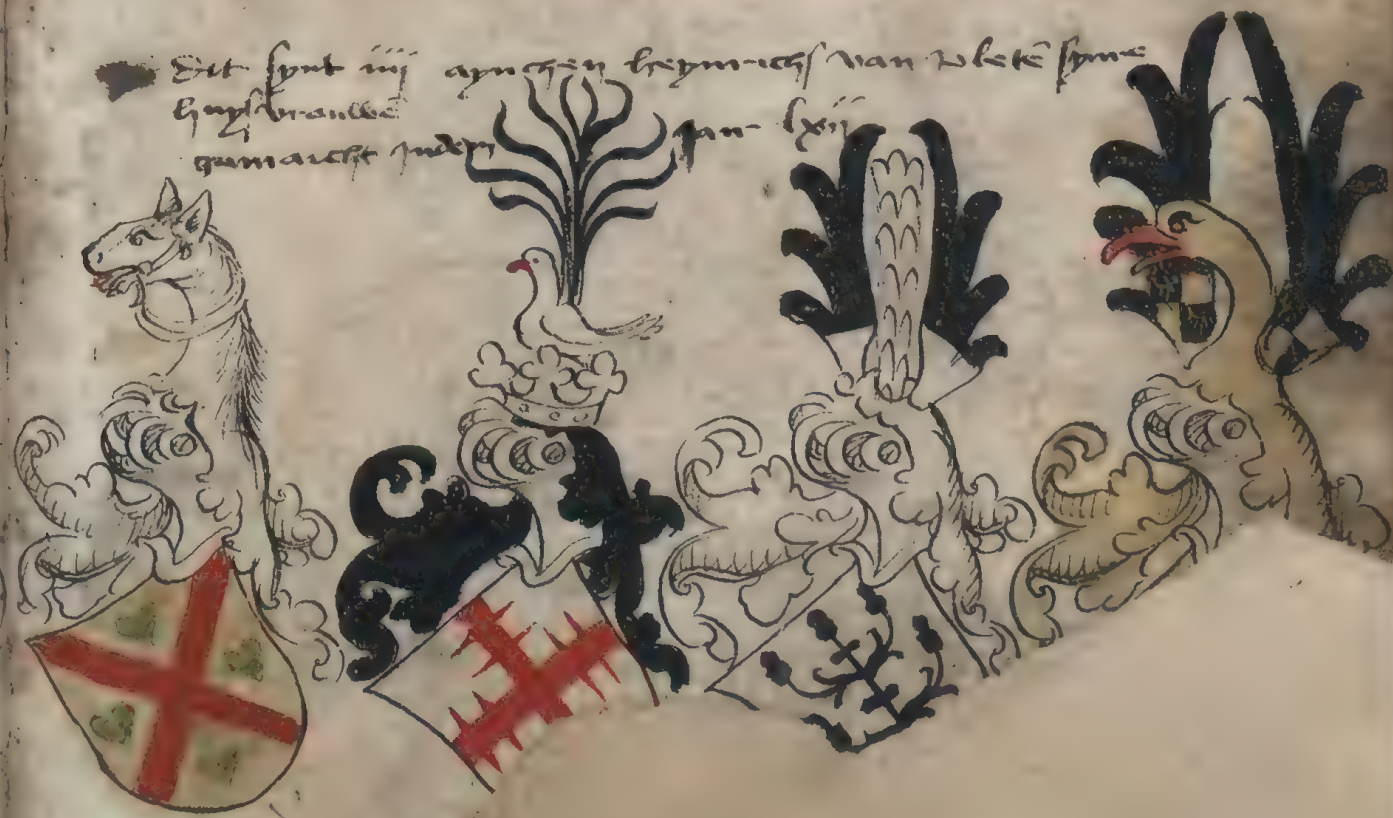 Dit synt iiii aynchen heynrichs van vletē syne
huysvrauwē
gemaicht indem jair lxii